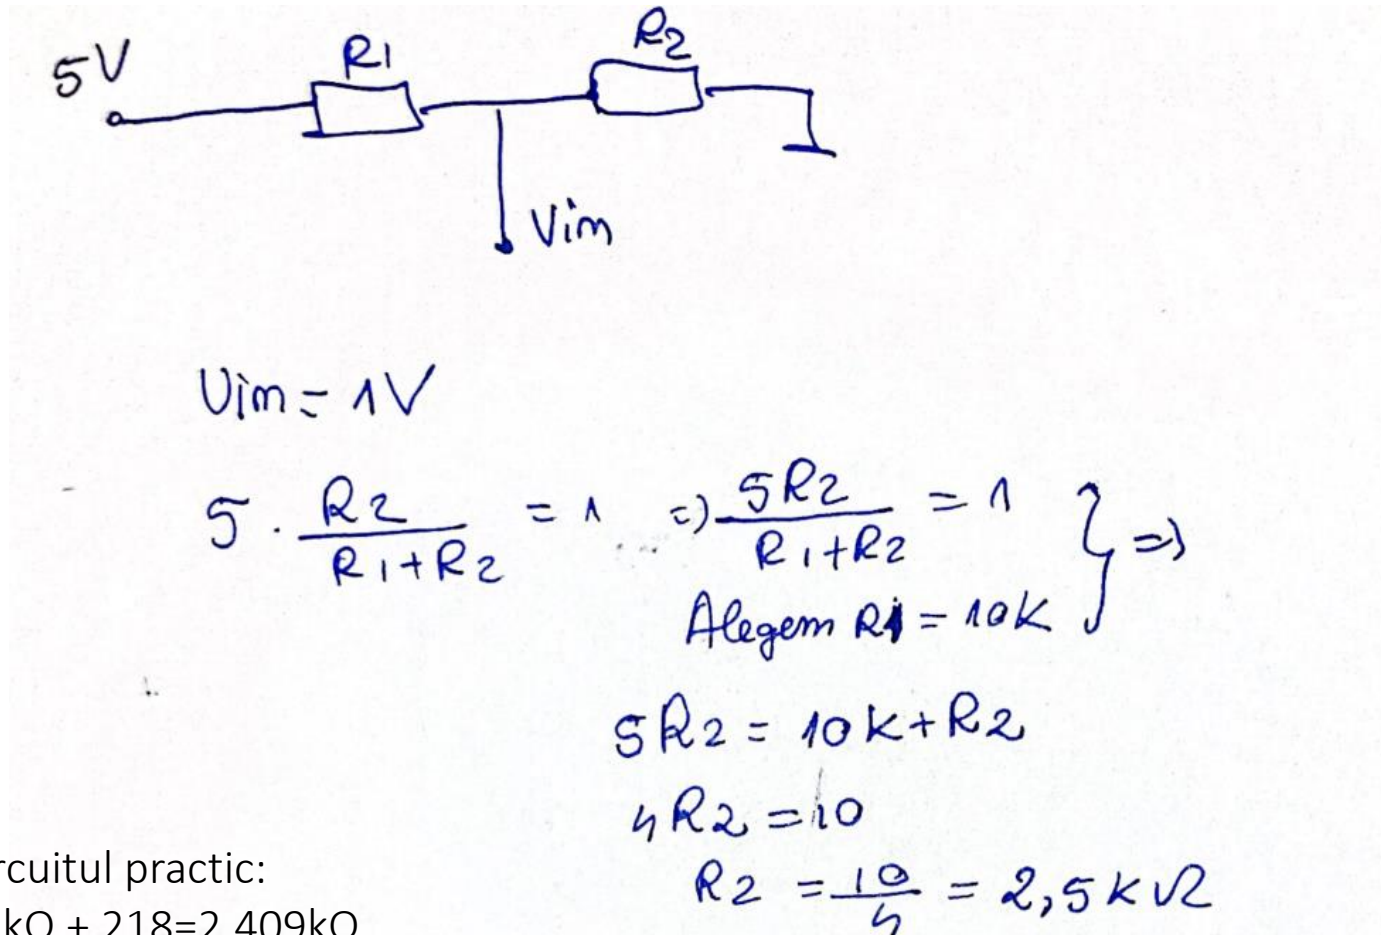 5V R1 R2
Vin
Vin = 1V
5 · R2 / R1+R2 = 1 => 5R2 / R1+R2 = 1 } =>
Alegem R1 = 10K
5R2 = 10K+R2
4R2 = 10
R2 = 10/4 = 2,5KΩ
rcuitul practic:
kΩ + 218=2,409kΩ